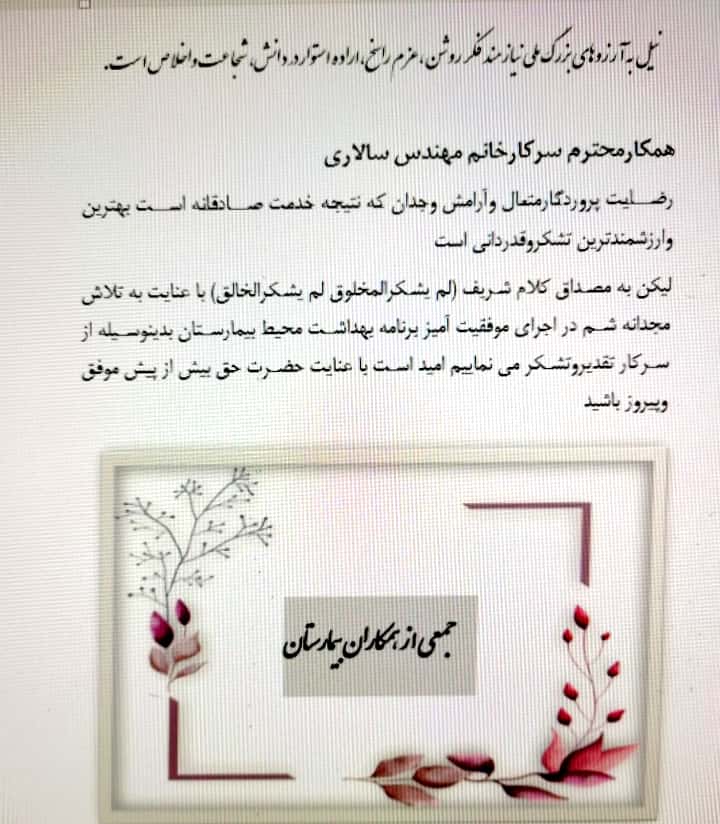 نیل به آرزوهای بزرگ ملی نیازمند فکر روشن، عزم راسخ، اراده استوار در دانش، شجاعت و اخلاص است.
همکارمحترم سرکارخانم مهندس سالاری
رضایت پروردگارمتعال وآرامش وجدان که نتیجه خدمت صادقانه است بهترین
وارزشمندترین تشکروقدردانی است
لیکن به مصداق کلام شریف (لم یشکرالمخلوق لم یشکرالخالق) با عنایت به تلاش
مجدانه شم در اجرای موفقیت آمیز برنامه بهداشت محیط بیمارستان بدینوسیله از
سرکار تقدیروتشکر می نماییم امید است با عنایت حضرت حق بیش از پیش موفق
وپیروز باشید
جمعی از همکاران بیمارستان